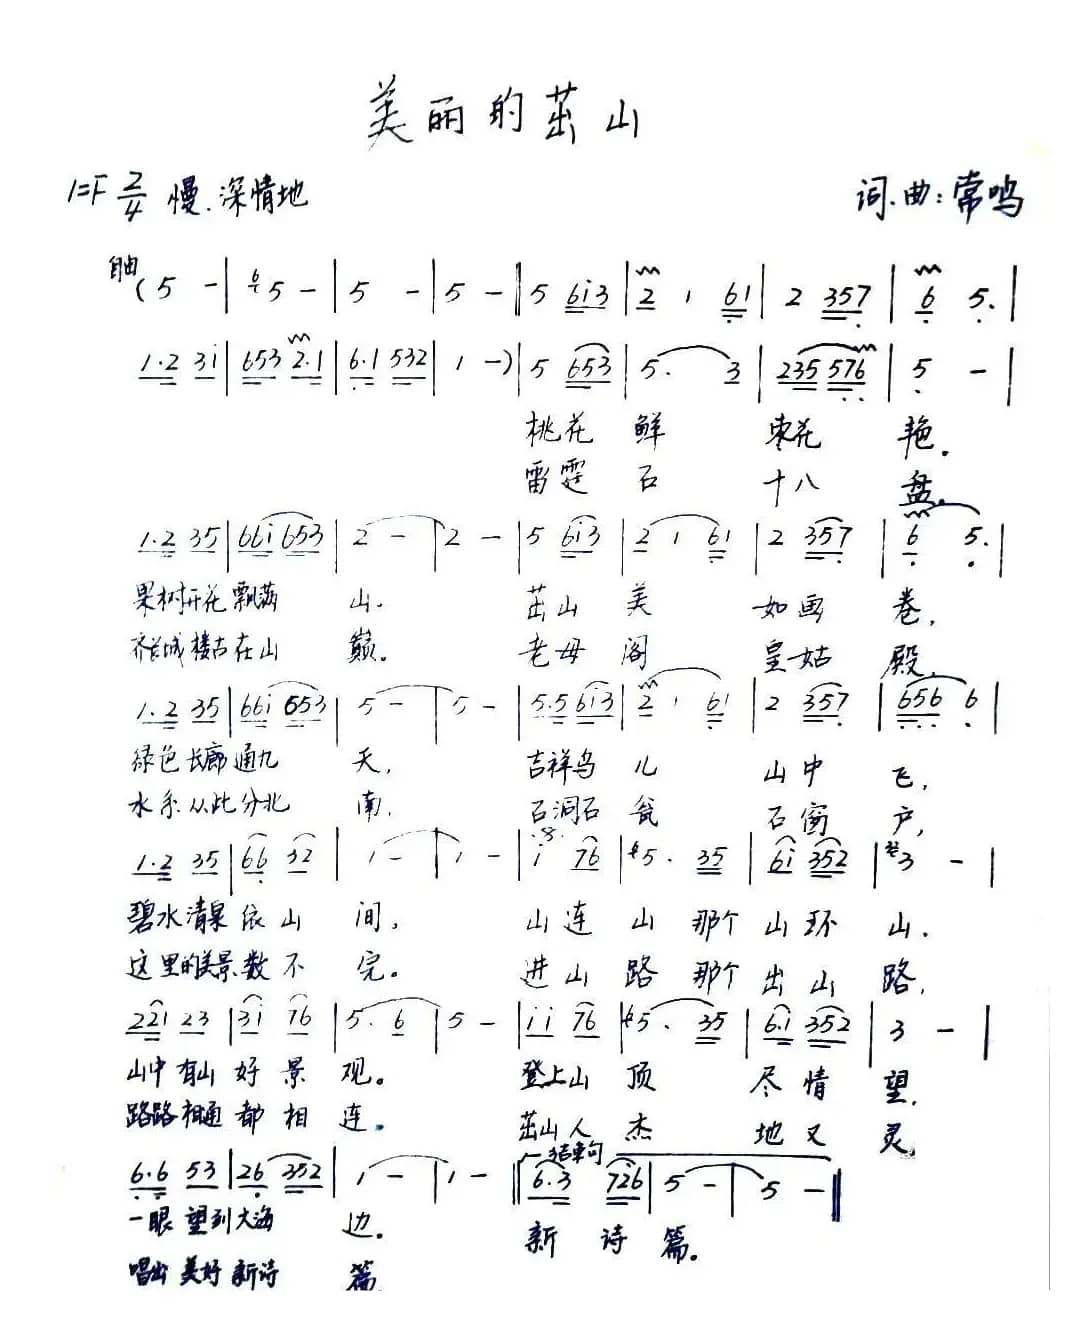 美丽的茁山
1=F 2/4 慢.深情地
词.曲:常鸣
自由
(5 - | 5 - | 5 - | 5 - || 5 6i3 | 2 1 61 | 2 357 | 6 5. |
1·2 3i | 653 2·1 | 6·1 532 | 1 -) | 5 653 | 5. 3 | 235 576 | 5 - |
桃花 鲜 枣花 艳.
雷霆 石 十八 盘.
1·2 35 | 66i 653 | 2 - | 2 - | 5 6i3 | 2 1 61 | 2 357 | 6 5. |
果树开花飘满 山. 茁山 美 如画 卷,
齐长城楼古在山 巅。 老母 阁 皇姑 殿,
1·2 35 | 66i 653 | 5 - | 5 - | 5·5 6i3 | 2 1 61 | 2 357 | 656 6 |
绿色长廊通九 天, 吉祥鸟 儿 山中 飞,
水系从此分北 南, 石洞石 瓮 石窗 户,
1·2 35 | 66 32 | 1 - | 1 - | i 76 | #5. 35 | 6i 352 | 3 - |
碧水清泉依山 间, 山连 山 那个 山环 山.
这里的美景数不 完。 进山 路 那个 出山 路,
221 23 | 3i 76 | 5. 6 | 5 - | ii 76 | #5. 35 | 6·1 352 | 3 - |
山中有山好景 观。 登上山 顶 尽情 望,
路路相通都相 连. 茁山人 杰 地又 灵,
结束句
6·6 53 | 26 352 | 1 - | 1 - || 6·3 726 | 5 - | 5 - ||
一眼望到大海 边. 新 诗 篇.
唱出美好新诗 篇